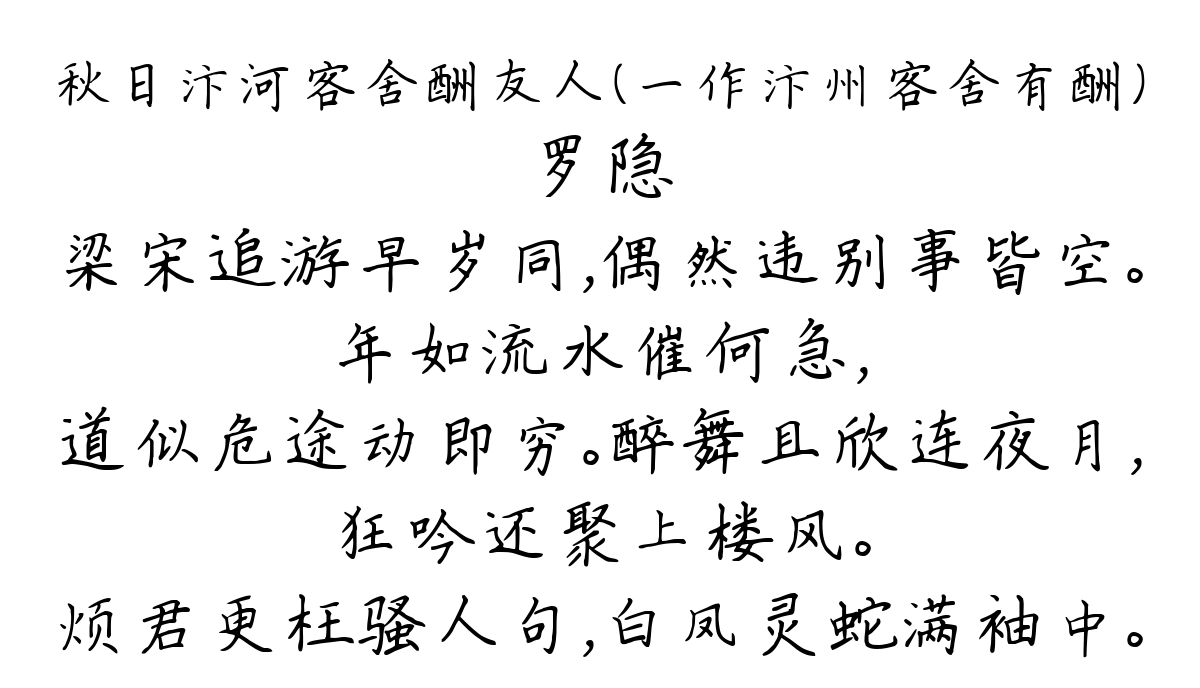 秋日汴河客舍酬友人(一作汴州客舍有酬)
罗隐
梁宋追游早岁同,偶然违别事皆空。
年如流水催何急,
道似危途动即穷。醉舞且欣连夜月,
狂吟还聚上楼风。
烦君更枉骚人句,白凤灵蛇满袖中。